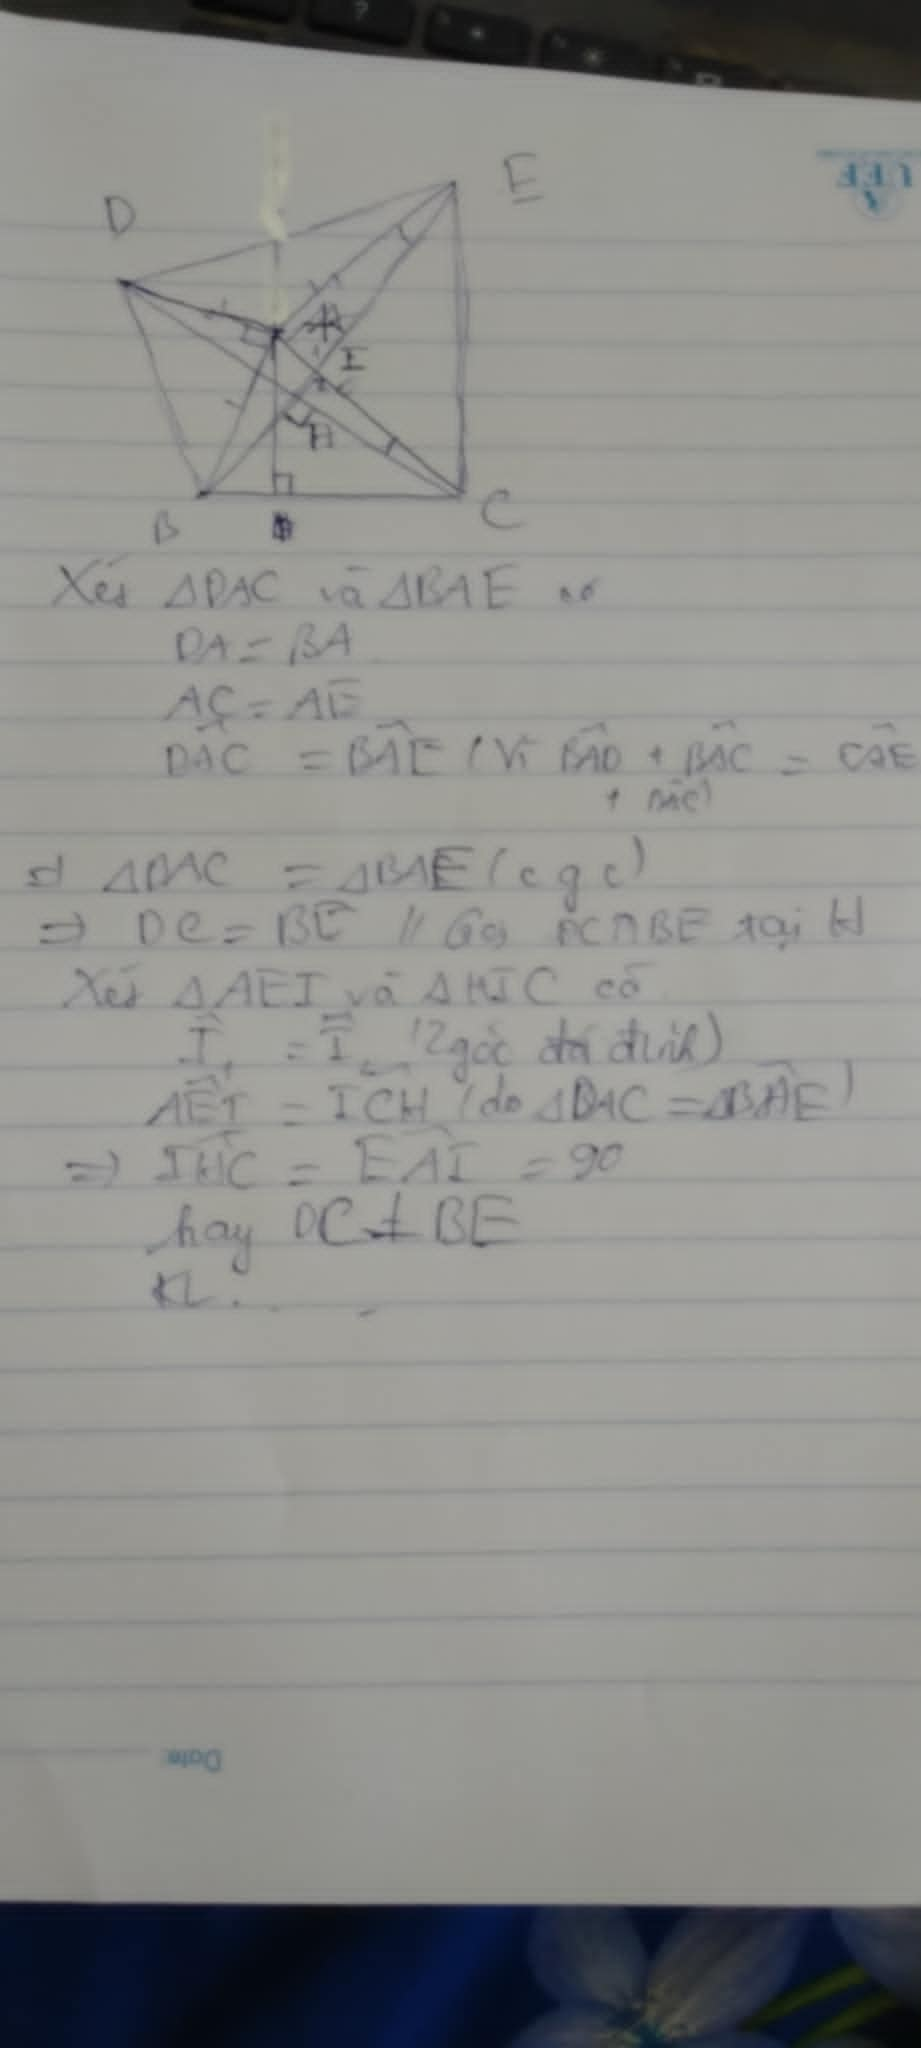 D
E
A
I
H
B
C
Xét ΔDAC và ΔBAE có
DA = BA
AC = AE
DAC = BAE (Vì BAD + BAC = CAE
+ BAC)
=> ΔDAC = ΔBAE (c g c)
=> DC = BE // Gọi DC∩BE tại H
Xét ΔAEI và ΔHIC có
I₁ = I₂ (2 góc đối đỉnh)
AEI = ICH (do ΔDAC = ΔBAE)
=> IHC = EAI = 90
hay DC ⊥ BE
KL....
UEF
Date: